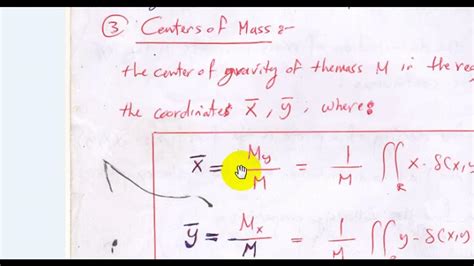 ③ Centers of Mass :-
the center of gravity of the mass M in the reg
the coordinates x̄ , ȳ , where :
x̄ = My/M = 1/M ∬R x . δ(x,y
ȳ = Mx/M = 1/M ∬R y . δ(x,y)